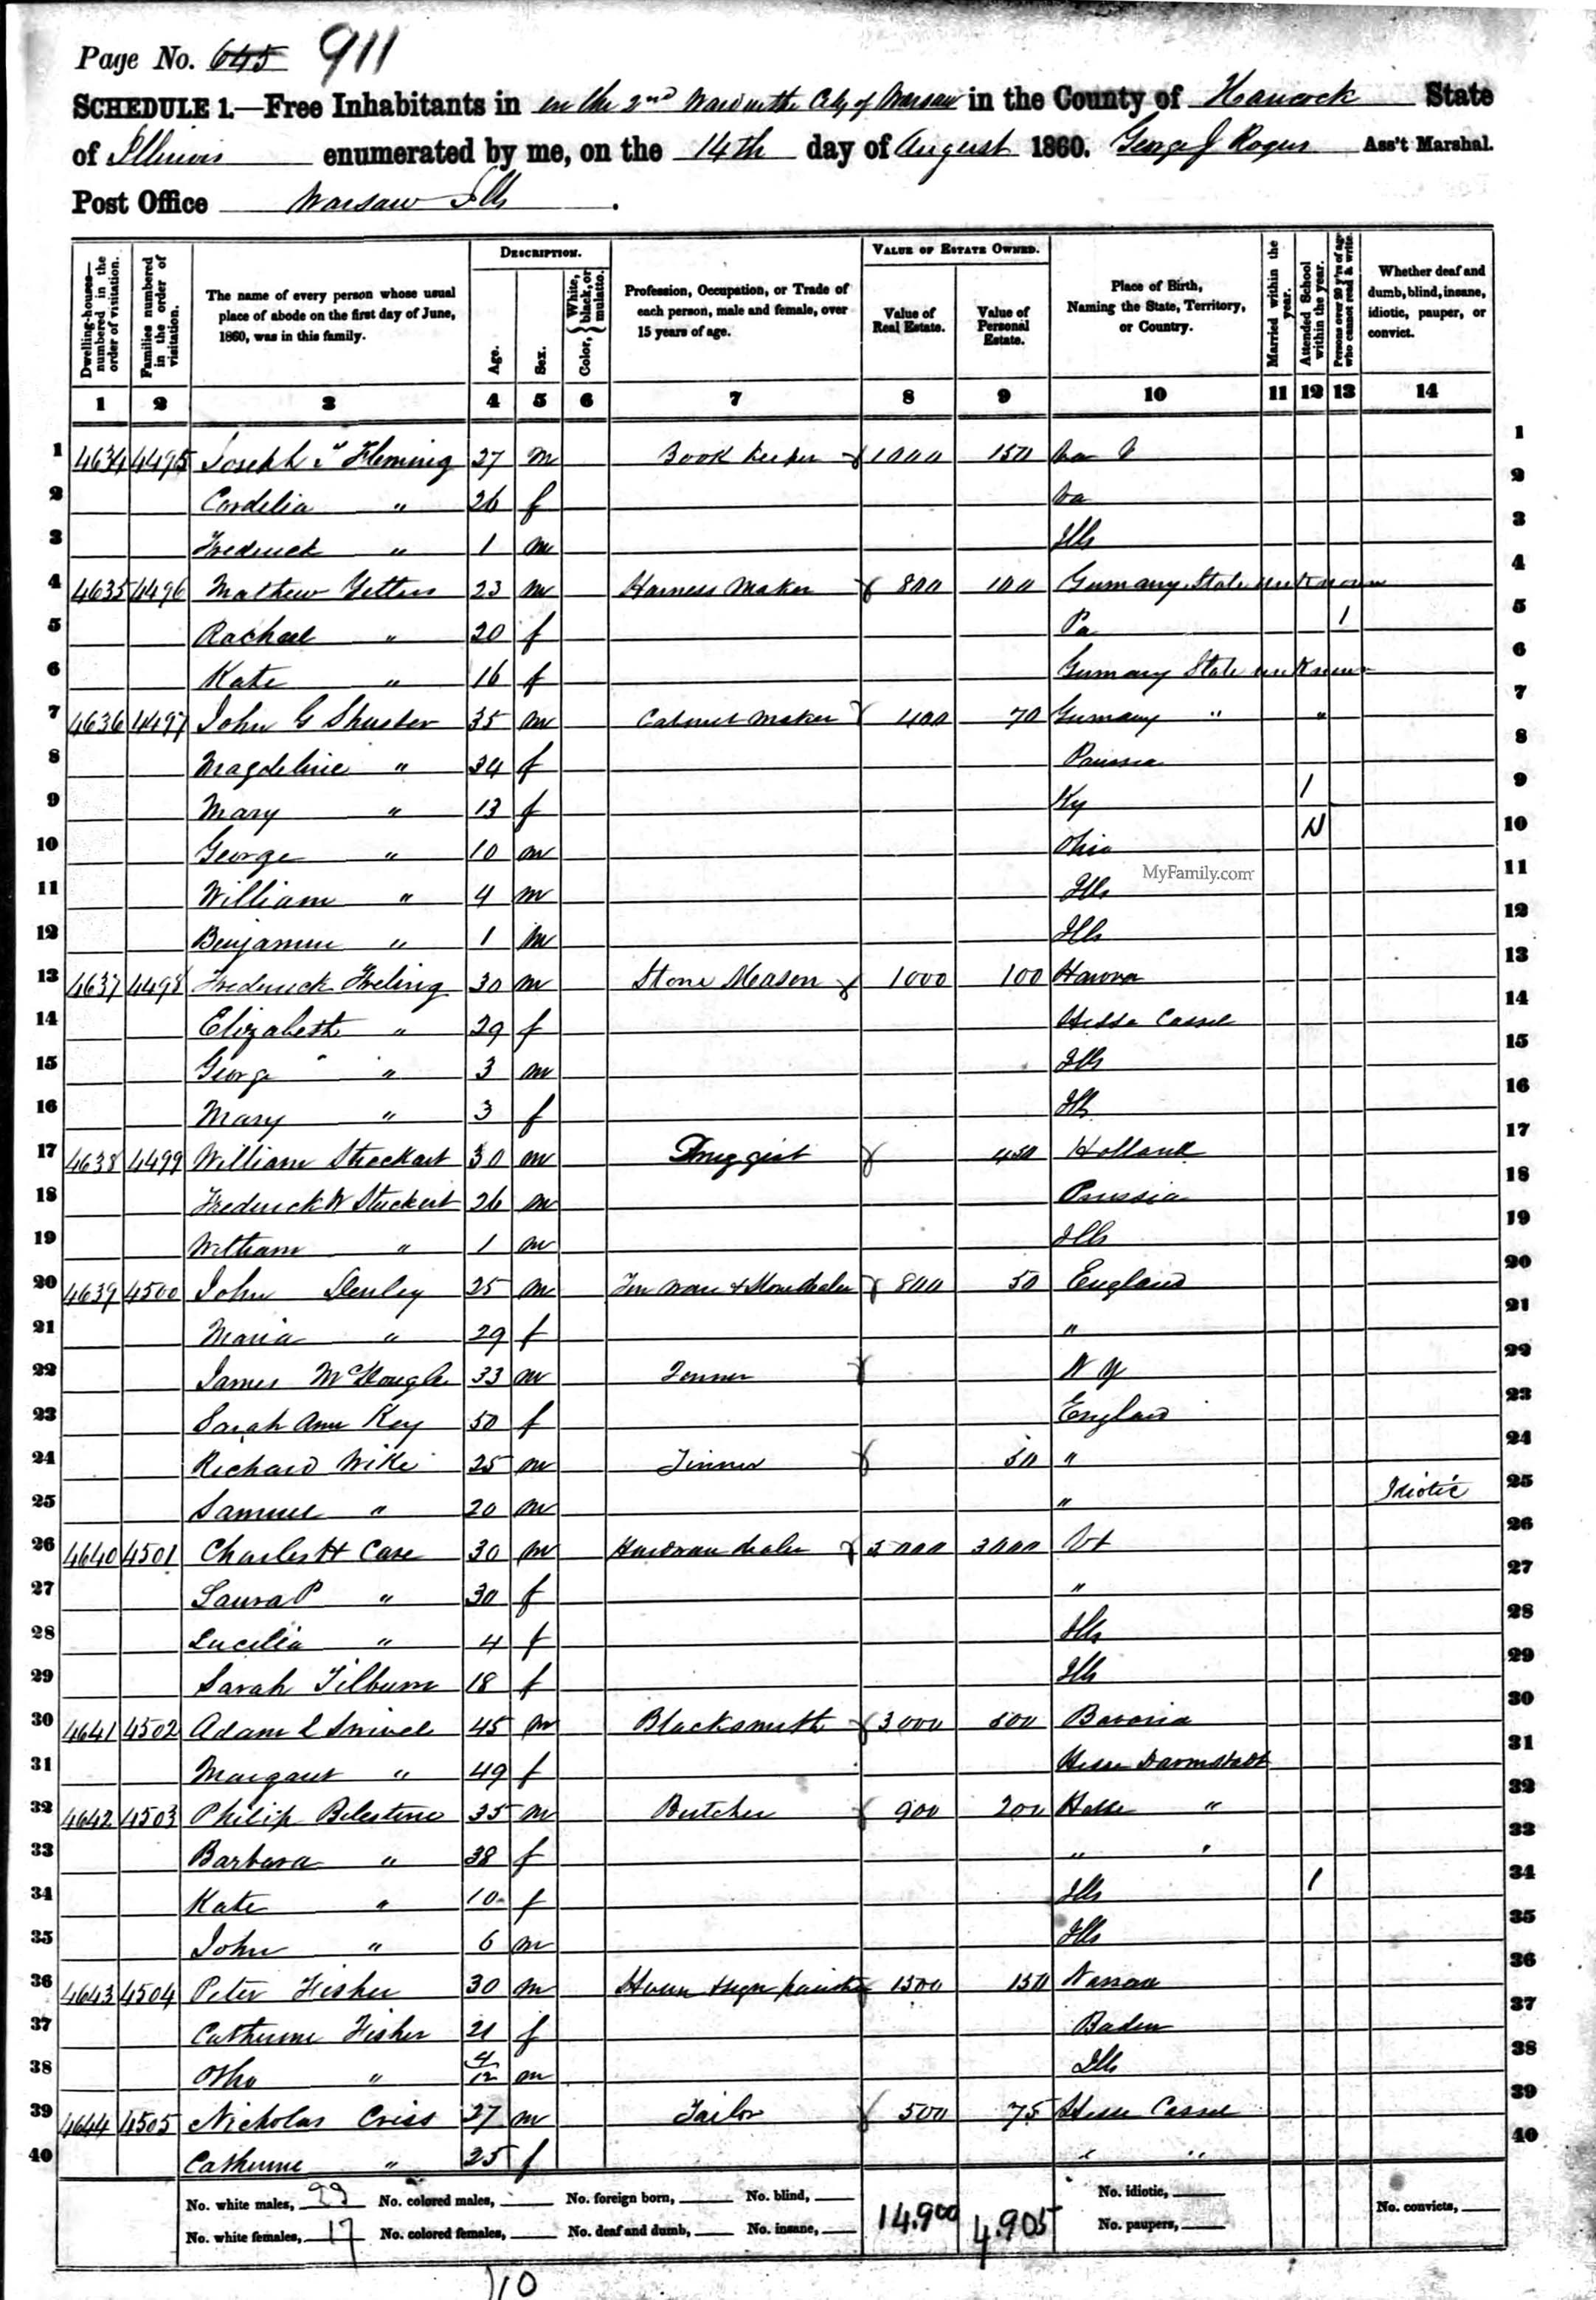 Page No. 645 911
SCHEDULE 1.—Free Inhabitants in in the 2nd Ward in the City of Warsaw in the County of Hancock State
of Illinois enumerated by me, on the 14th day of August 1860. George J Rogers Ass't Marshal.
Post Office Warsaw Ills.
Dwelling-houses—numbered in the order of visitation.
Families numbered in the order of visitation.
The name of every person whose usual place of abode on the first day of June, 1860, was in this family.
DESCRIPTION.
Age.
Sex.
Color, { White, black, or mulatto.
Profession, Occupation, or Trade of each person, male and female, over 15 years of age.
VALUE OF ESTATE OWNED.
Value of Real Estate.
Value of Personal Estate.
Place of Birth, Naming the State, Territory, or Country.
Married within the year.
Attended School within the year.
Persons over 20 y'rs of age who cannot read & write.
Whether deaf and dumb, blind, insane, idiotic, pauper, or convict.
1 2 3 4 5 6 7 8 9 10 11 12 13 14
1 4634 4495 Joseph Fleming 27 m Book Keeper 1000 150 Va 1
2 Cordelia " 26 f Va 2
3 Frederick " 1 m Ills 3
4 4635 4496 Mathew Yetter 23 m Harness Maker 800 100 Germany State unknown 4
5 Rachael " 20 f Pa 1 5
6 Kate " 16 f Germany State unknown 6
7 4636 4497 John G Shuster 35 m Cabinet Maker 400 70 Germany " " 7
8 Magdeline " 34 f Prussia 8
9 Mary " 13 f Ky 1 9
10 George " 10 m Ohio 10
MyFamily.com
11 William " 4 m Ills 11
12 Benjamin " 1 m Ills 12
13 4637 4498 Frederick Freling 30 m Stone Meason 1000 100 Hanover 13
14 Elizabeth " 29 f Hesse Cassel 14
15 George " 3 m Ills 15
16 Mary " 3 f Ills 16
17 4638 4499 William Streckart 30 m Druggist 450 Holland 17
18 Frederick W Stuckert 26 m Prussia 18
19 William " 1 m Ills 19
20 4639 4500 John Denley 25 m Tin ware & Stove dealer 800 50 England 20
21 Maria " 29 f " 21
22 James 33 m Tinner N Y 22
23 Sarah Ann Key 50 f England 23
24 Richard Wike 25 m Tinner 50 " 24
25 Samuel " 20 m " Idiotic 25
26 4640 4501 Charles H Case 30 m Hardware dealer 3000 3000 Vt 26
27 Laura P " 30 f " 27
28 Lucelia " 4 f Ills 28
29 Sarah Tilburn 18 f Ills 29
30 4641 4502 Adam L Snivel 45 m Blacksmith 3000 500 Bavaria 30
31 Margaret " 49 f Hesse Darmstadt 31
32 4642 4503 Philip Belestine 35 m Butcher 900 200 Hesse " 32
33 Barbara " 38 f " " 33
34 Kate " 10 f Ills 1 34
35 John " 6 m Ills 35
36 4643 4504 Peter Fisher 30 m House & sign painter 1500 150 Nassau 36
37 Catherine Fisher 21 f Baden 37
38 Otho " 4/12 m Ills 38
39 4644 4505 Nicholas Criss 27 m Tailor 500 75 Hesse Cassel 39
40 Catherine " 25 f " " 40
No. white males, 23 No. colored males, No. foreign born, No. blind, 14.900 4.905 No. idiotic, No. convicts,
No. white females, 17 No. colored females, No. deaf and dumb, No. insane, No. paupers,
10